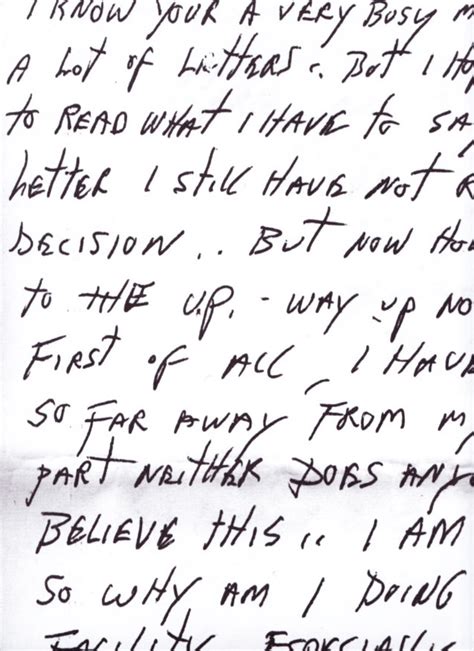 I KNOW YOUR A VERY BUSY M
A LOT OF LETTERS.. BUT I HO
TO READ WHAT I HAVE TO SA
LETTER I STILL HAVE NOT R
DECISION.. BUT NOW HO
TO THE U.P. - WAY UP NO
FIRST OF ALL, I HAVE
SO FAR AWAY FROM M
PART NEITHER DOES ANYO
BELIEVE THIS.. I AM
SO WHY AM I DOING
FACILITY ESPECIALLY